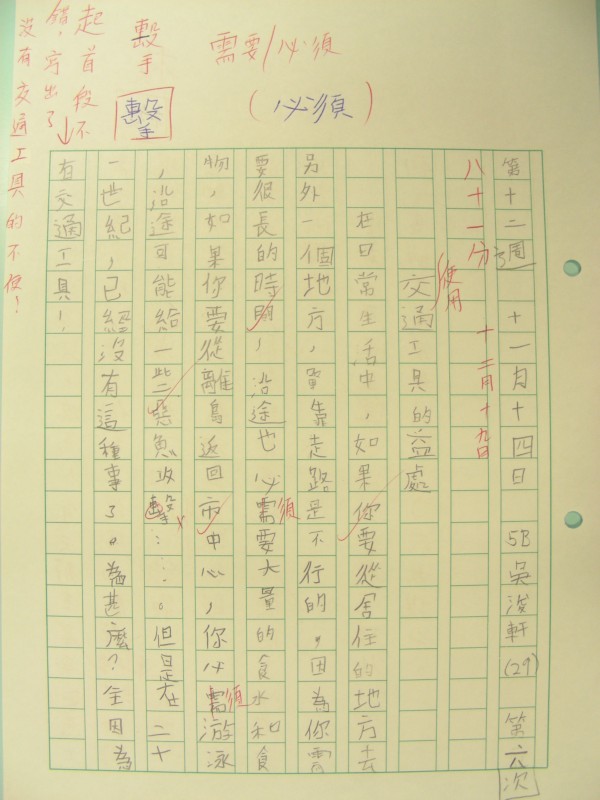 需要/必須
(必須)
毄手
擊
起首段不
錯，寫出了
沒有交通工具的不便！
第十二週 十一月十四日 5B 吳浚軒 (29) 第六次
八十一分 十二月十九日
使用
交通工具的益處
在日常生活中，如果你要從居住的地方去
另外一個地方，單靠走路是不行的，因為你需
要很長的時間，沿途也必需要大量的食水和食
須
物，如果你要從離島返回市中心，你必需游泳
須
，沿途可能給一些惡魚攻擊……。但是在二十
一世紀，已經沒有這種事了。為甚麼？全因為
有交通工具！